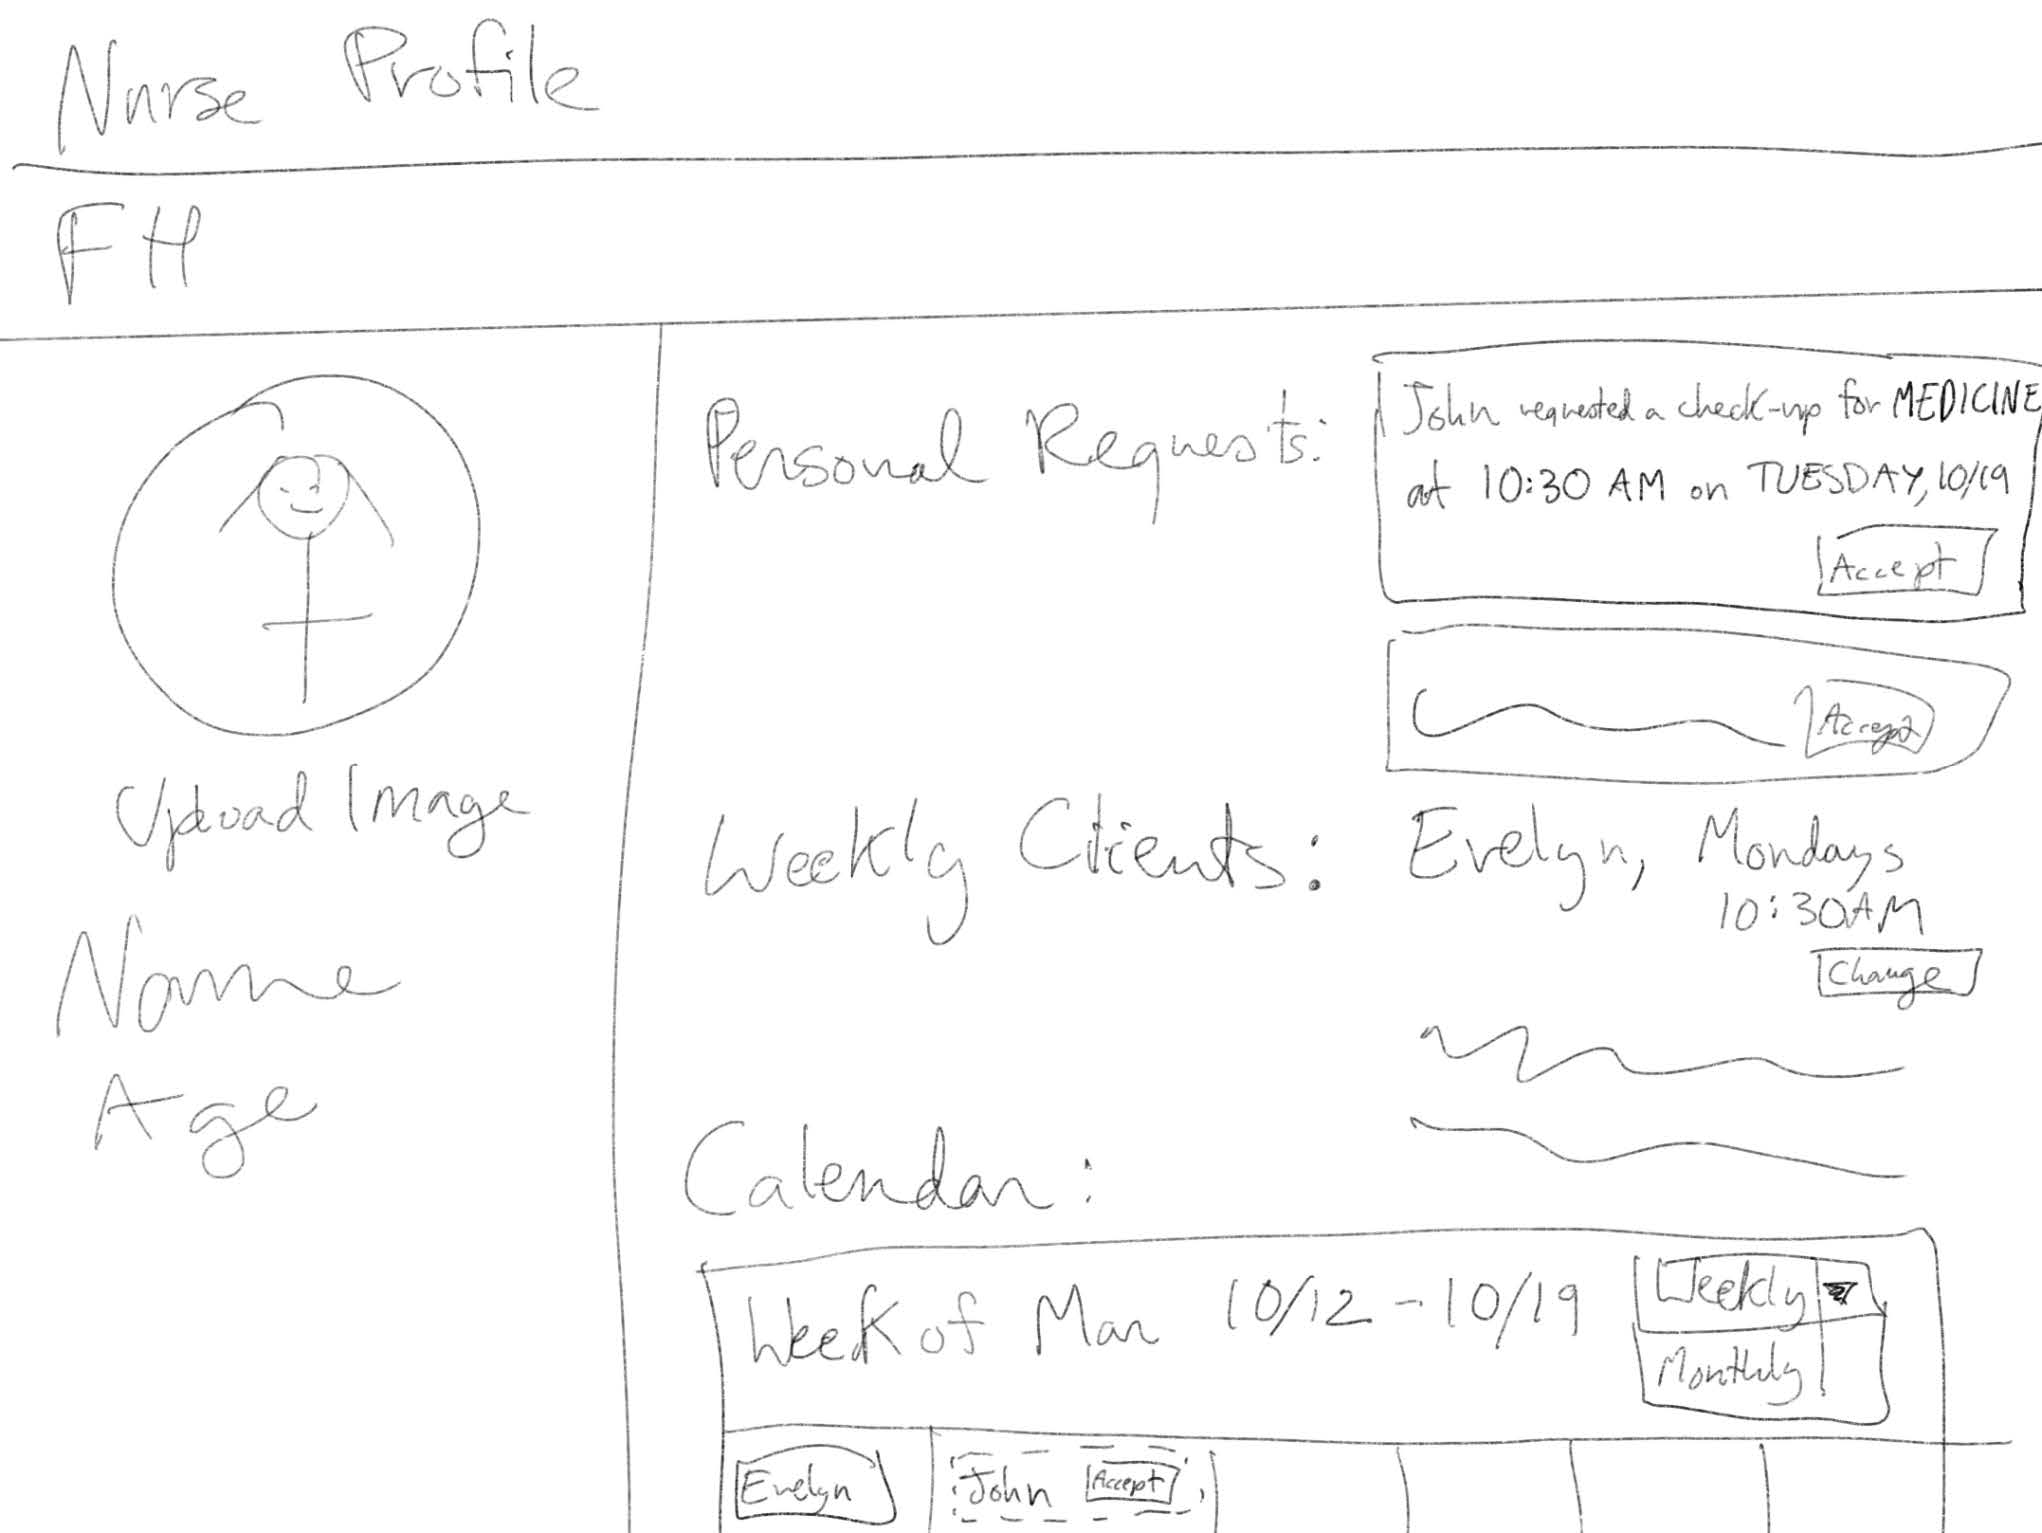 Nurse Profile
FH
Upload Image
Name
Age
Personal Requests:
John requested a check-up for MEDICINE
at 10:30 AM on TUESDAY, 10/19
Accept
Accept
Weekly Clients:
Evelyn, Mondays
10:30AM
Change
Calendar:
Week of Mon 10/12 - 10/19
Weekly
Monthly
Evelyn
John Accept